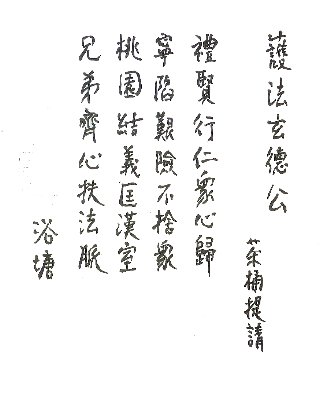 護法玄德公
菜桶提請
禮賢行仁眾心歸
寧陷艱險不捨眾
桃園結義匡漢室
兄弟齊心扶法脈
浴塘